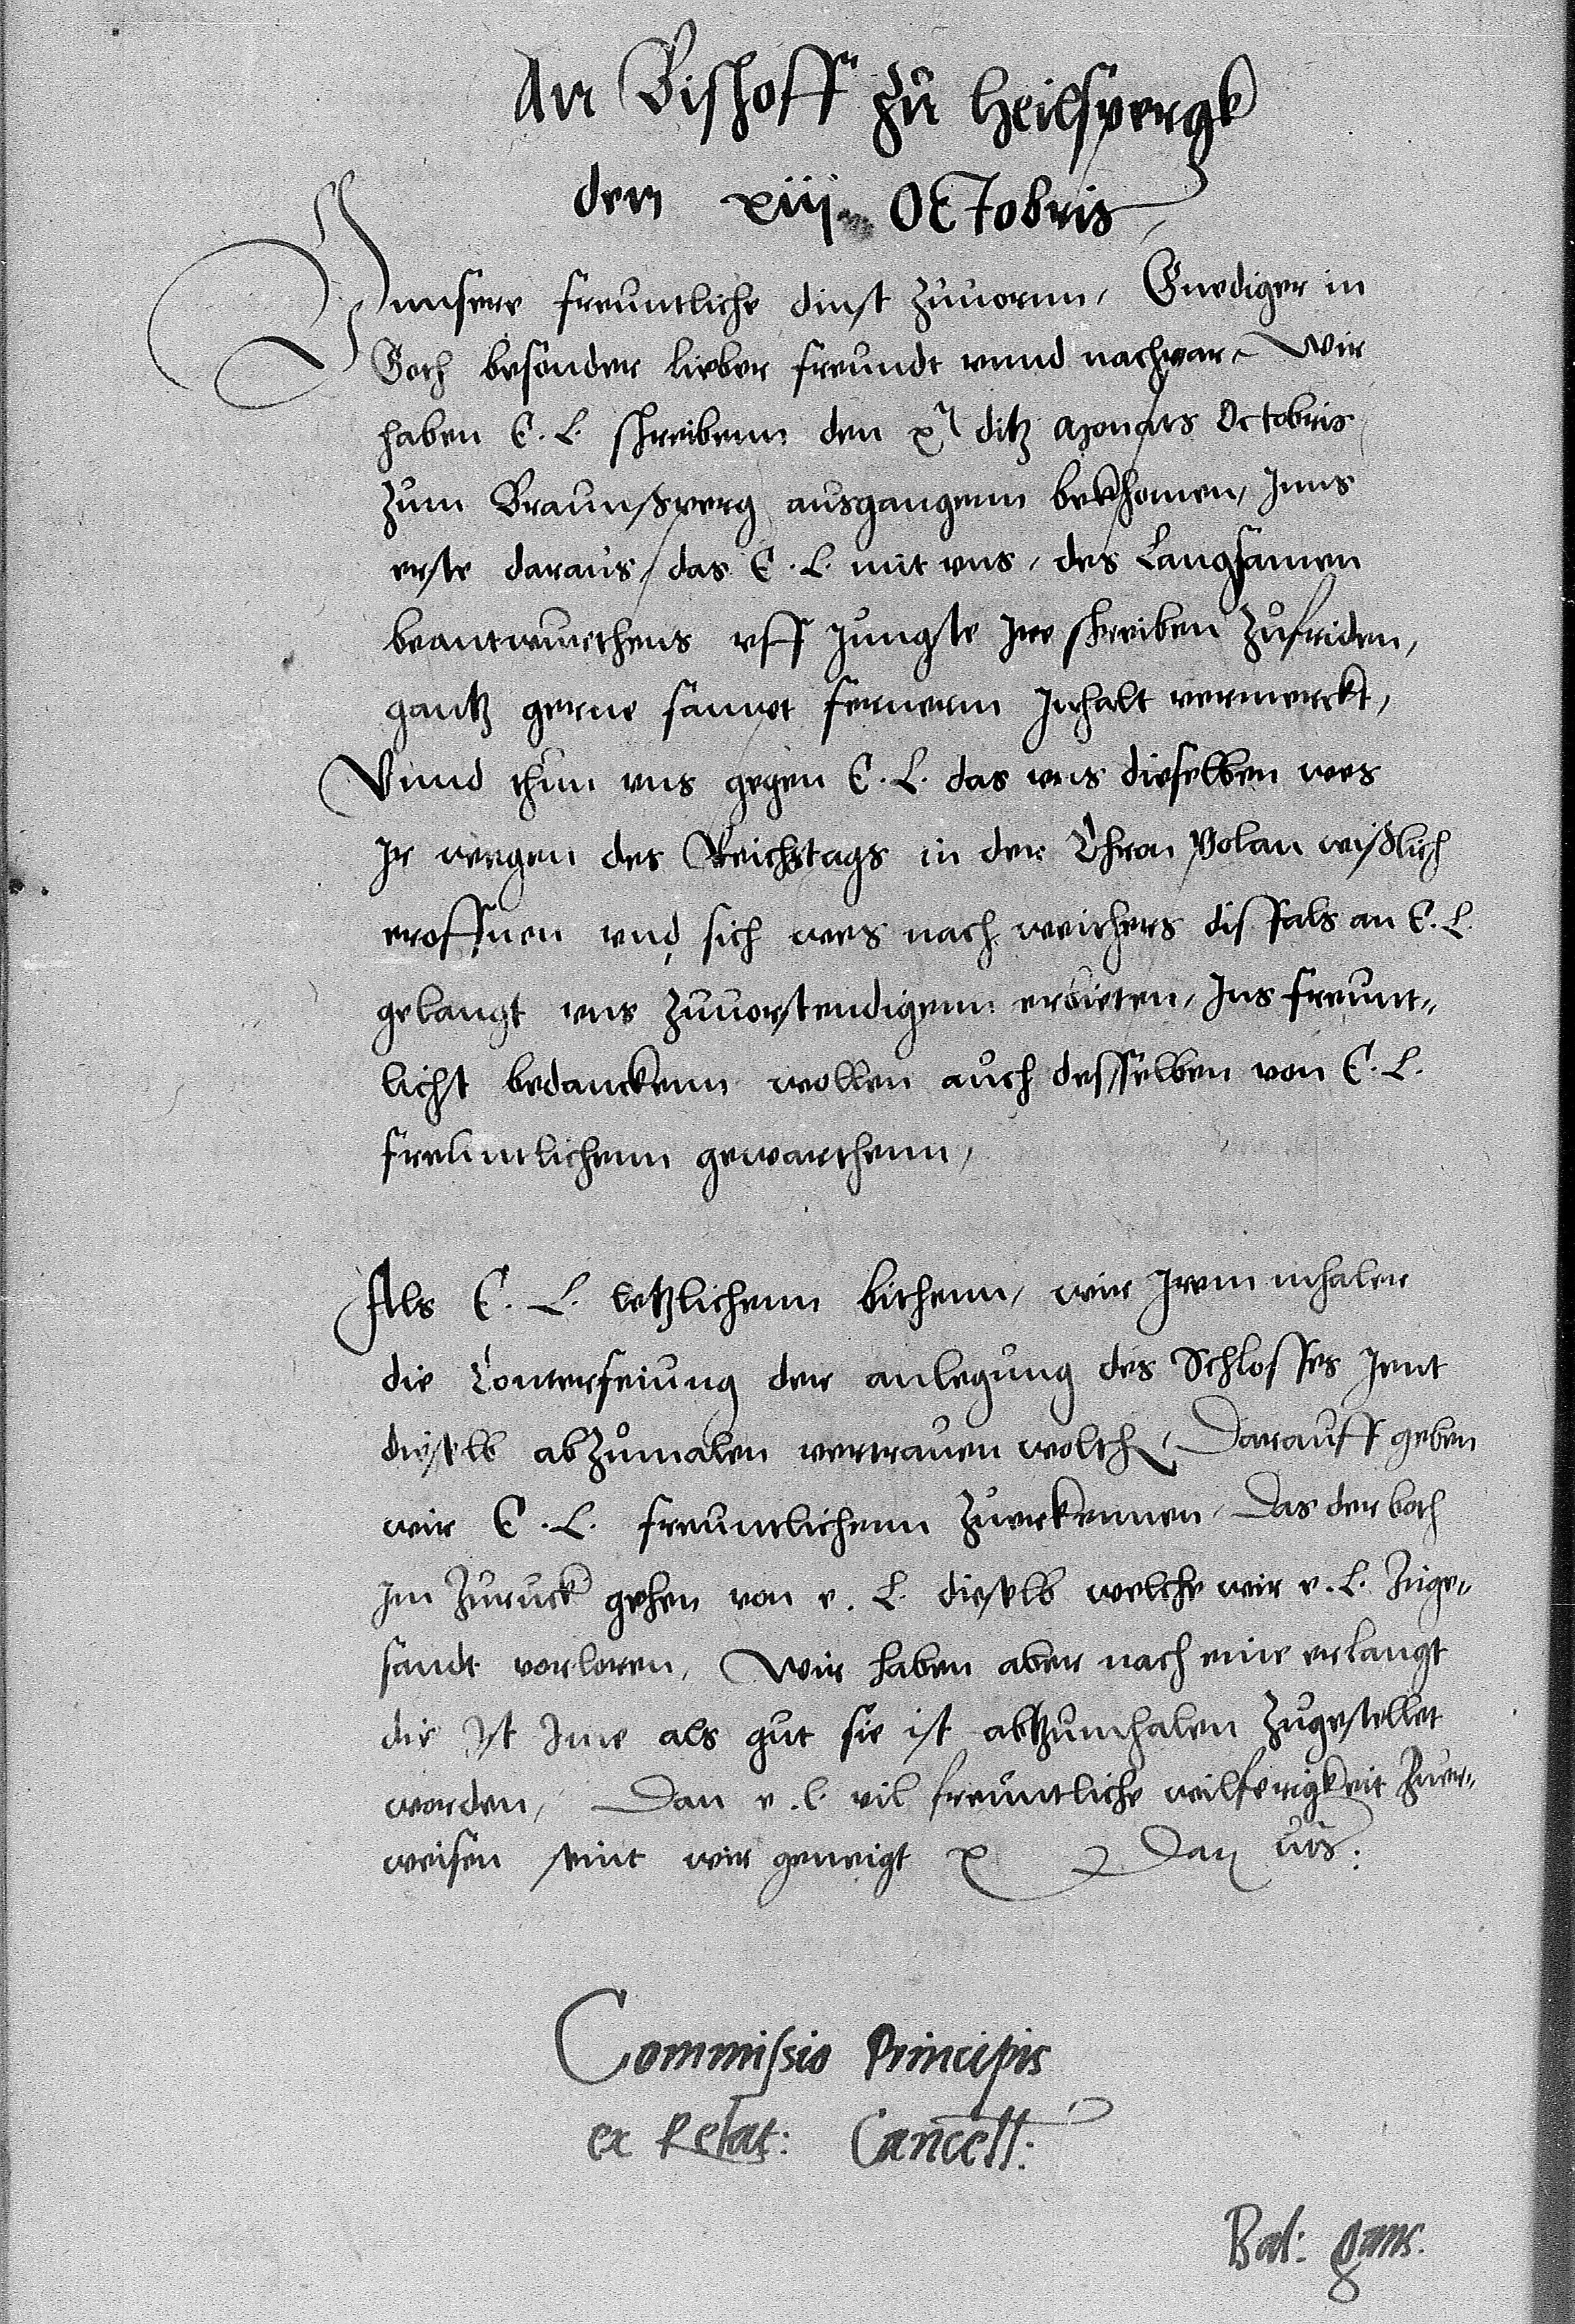 An Bischoff zu Heilspergk
den xiij Octobris
Unnsere freuntliche dinst zuuornn, Gnediger in
Goth besonder lieber freundt vnnd nachpar, Wir
haben E. L. schreibenn den x ditz Monats Octobris
zum Braunsperg ausgangenn bekhomen, Inns
erste daraus, das E. L. mit vns, des Langsamen
beantwurthens vff Jungste Ire schreiben zufriden,
gantz gerne sampt fernerm Inhalt vermerckt,
Vnnd thun vns gegen E. L. das vns dieselben wes
Ir wegen des Reichstags in der Chron Polan wißlich
eroffnen vnd sich wes nach weithers disfals an E. L.
gelangt vns zuuorstendigenn erbieten, Ins freunt„
lichst bedanckenn wollen auch desselben von E. L.
freuntlichenn gewarthenn,
Als E. L. letzlichenn bithenn, wir Irem mhaler
die Conterfeiung der anlegung des Schlosses
dieselb abzumalen vertrauen wolth, Darauff geben
wir E. L. freuntlichenn zuerkennen, Das der both
Im zuruck gehen von e. L. dieselb welche wir e. L. zuge„
sandt vorloren, Wir haben aber noch eine erlangt
die ist Ime als gut sie ist abtzumhalen zugestellet
worden, Dan e. l. vil freuntliche wilferigkeit zuer„
weisen seint wir geneigt Dat uts:
Commissio Principis
ex Relat: Cancell:
Bal: gans.